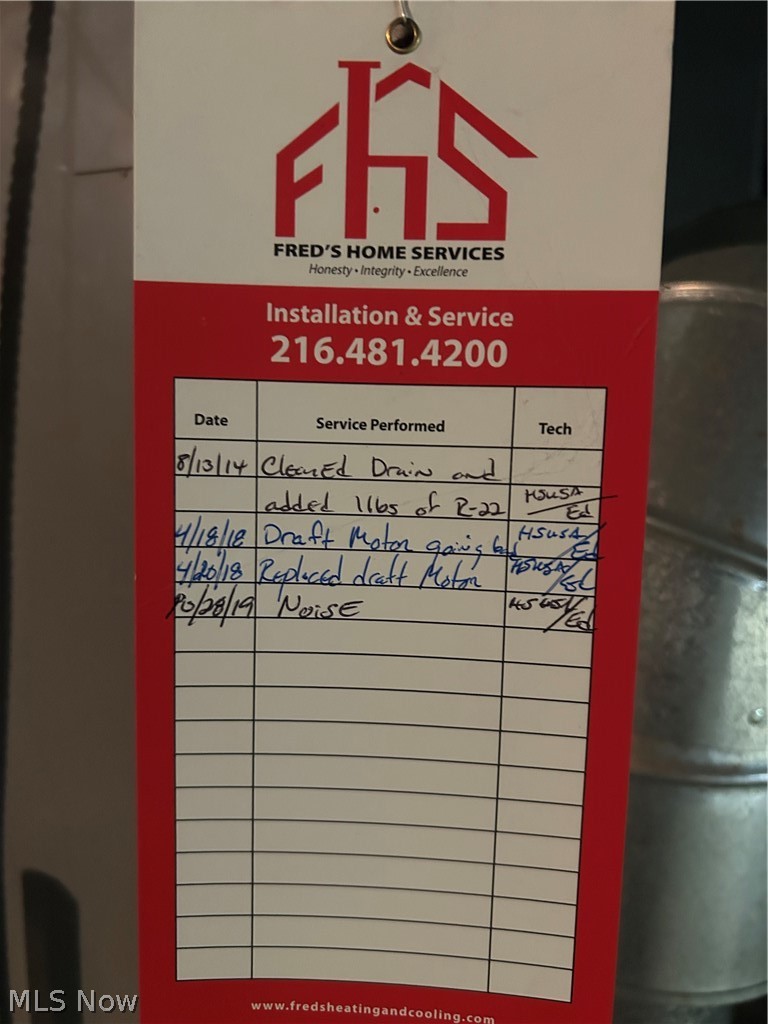 FHS
FRED'S HOME SERVICES
Honesty • Integrity • Excellence
Installation & Service
216.481.4200
Date Service Performed Tech
8/13/14 Cleaned Drain and
added 1lbs of R-22 HSUSA/Ed
4/18/18 Draft Motor going bad HSUSA/Ed
4/20/18 Replaced draft Motor HSUSA/Ed
10/28/19 NOISE HSUSA/Ed
www.fredsheatingandcooling.com
MLS Now